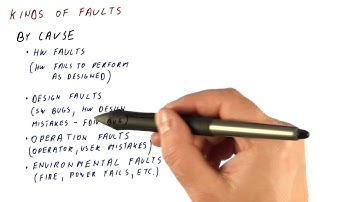 KINDS OF FAULTS
BY CAUSE
• HW FAULTS
(HW FAILS TO PERFORM
AS DESIGNED)
• DESIGN FAULTS
(SW BUGS, HW DESIGN
MISTAKES - FDIV BUG)
• OPERATION FAULTS
(OPERATOR, USER MISTAKES)
• ENVIRONMENTAL FAULTS
(FIRE, POWER FAILS, ETC.)